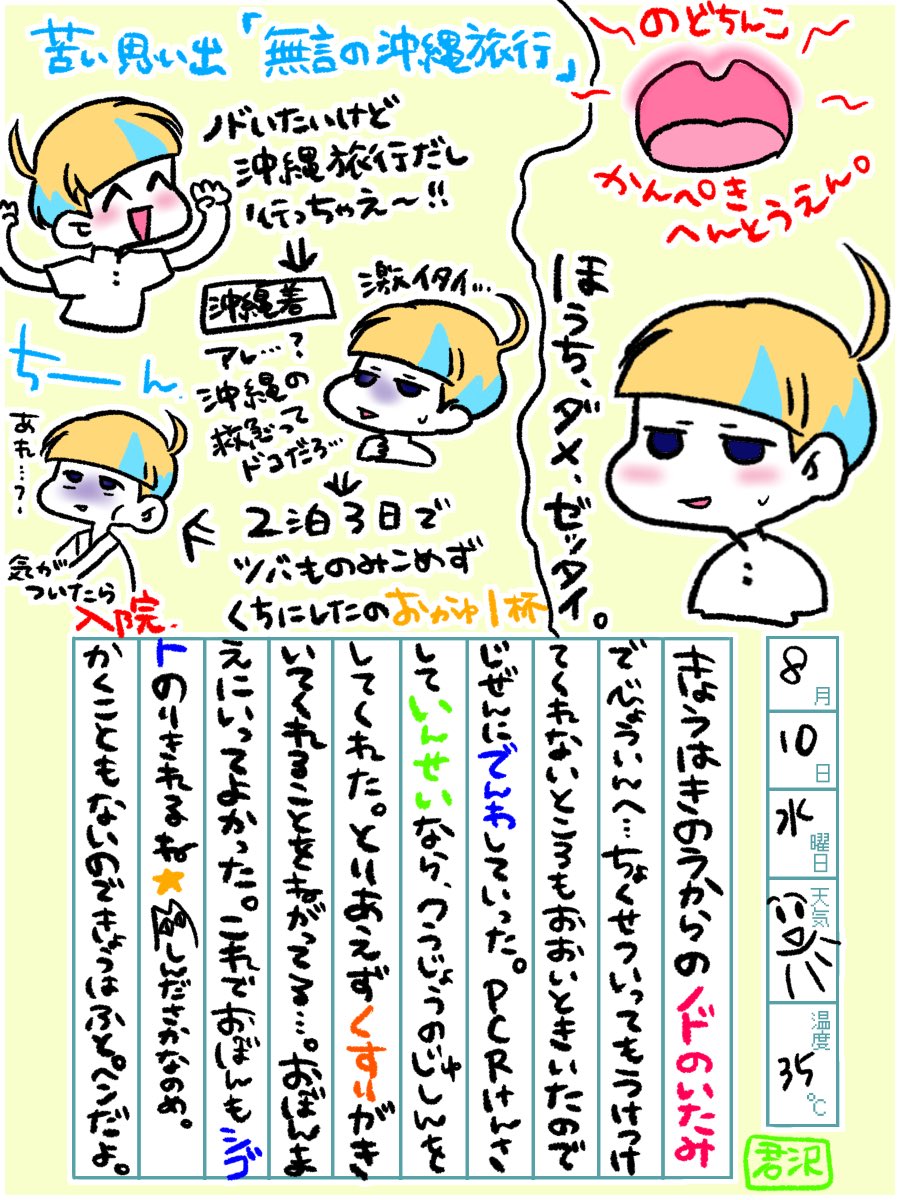 苦い思い出「無言の沖縄旅行」
ノドいたいけど
沖縄旅行だし
行っちゃえ〜!!
沖縄着
激イタイ…
アレ…?
沖縄の
救急って
ドコだろ…
2泊3日で
ツバものみこめず
くちにしたのおかゆ1杯
ちーん
あれ…?
気が
ついたら
入院
のどちんこ
かんぺき
へんとうえん。
ほうち、ダメ、ゼッタイ。
8月
10日
水曜日
天気
温度
35℃
きょうはきのうからのノドのいたみ
でびょういんへ…ちょくせついってもうけつけ
てくれないところもおおいときいたので
じぜんにでんわしていった。PCRけんさ
していんせいなら、つうじょうのじゅしんを
してくれた。とりあえずくすりがき
いてくれることをねがってる…。おぼんま
えにいってよかった。これでおぼんもシゴ
トのりきれるね★しんださかなのめ。
かくこともないのできょうはふとペンだよ。
君沢